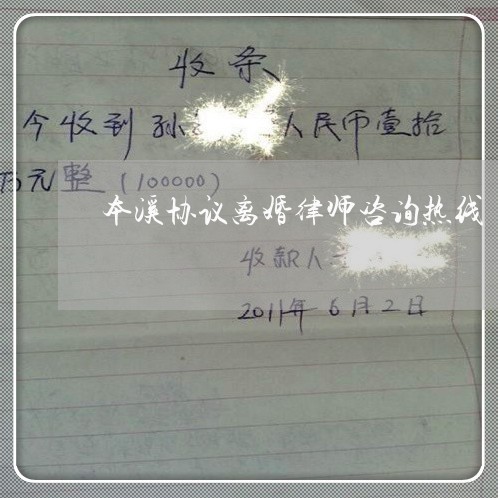 收条
今收到孙 人民币壹拾
万元整(100000)
本溪协议离婚律师咨询热线
收款人
2011年6月2日